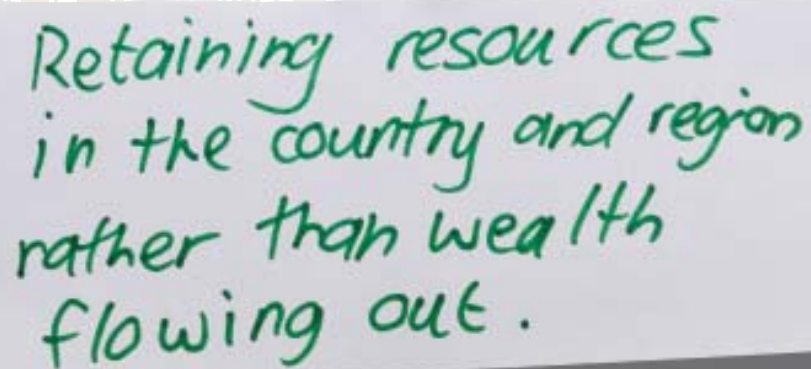 Retaining resources
in the country and region
rather than wealth
flowing out.